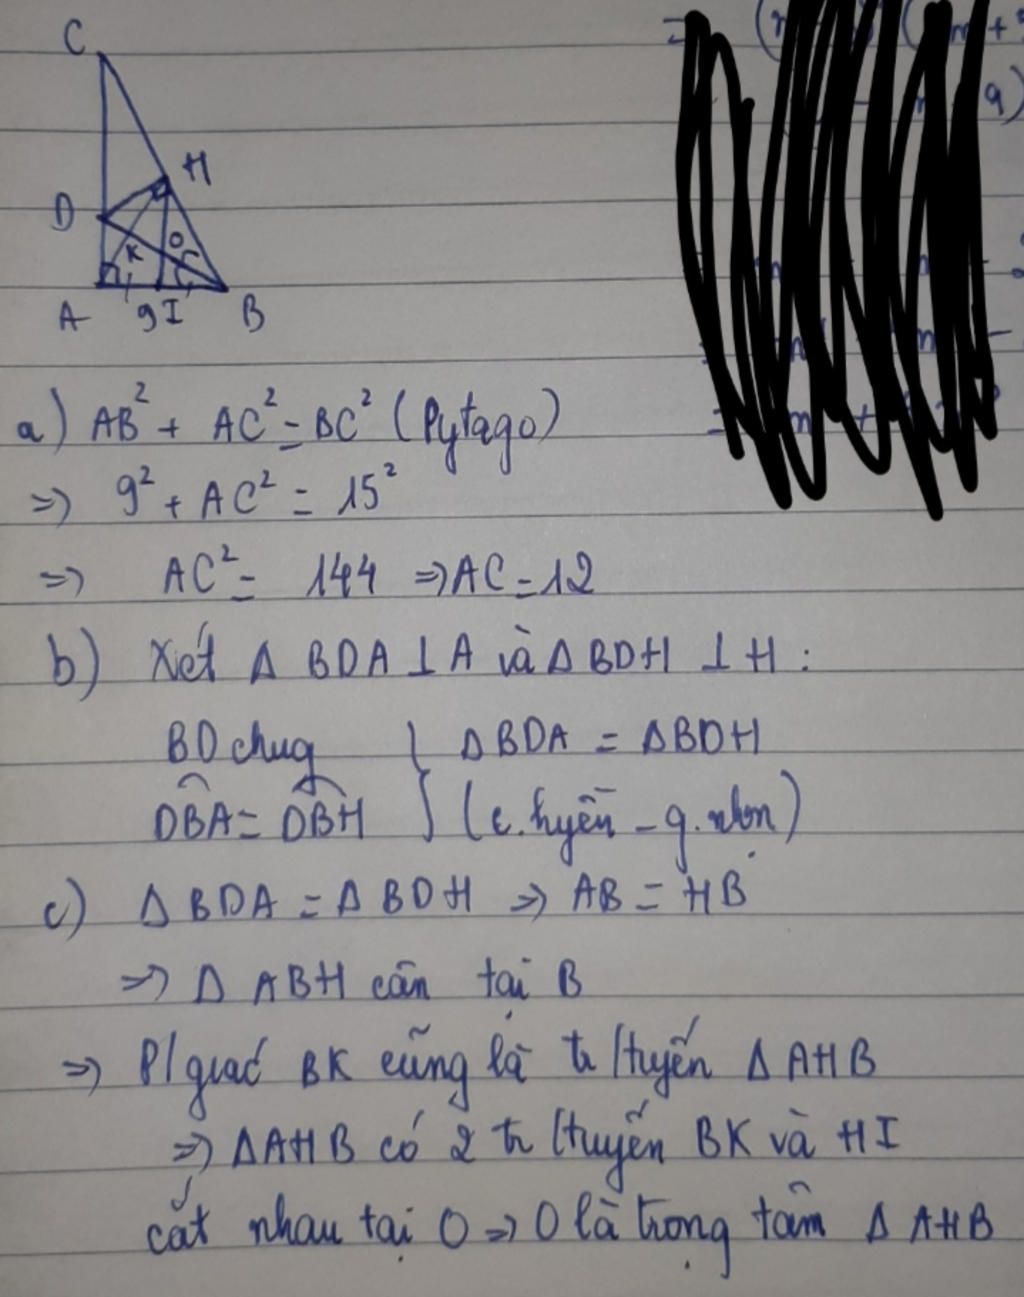 C
H
D
K
O
A
9
I
B
a) AB² + AC² = BC² (Pytago)
=> 9² + AC² = 15²
=> AC² = 144 => AC = 12
b) Xét Δ BDA ⊥ A và Δ BDH ⊥ H :
BD chug } Δ BDA = Δ BDH
DBA = DBH } (c.hyền - g.nhọn)
c) Δ BDA = Δ BDH => AB = HB
=> Δ ABH cân tại B
=> P/giác BK cũng là tr/tuyến Δ AHB
=> Δ AHB có 2 tr/tuyến BK và HI
cắt nhau tại O => O là trọng tâm Δ AHB